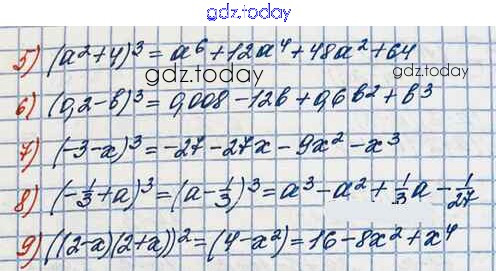 gdz.today
5) (a²+4)³ = a⁶+12a⁴+48a²+64
gdz.today
gdz.today
6) (0,2-b)³ = 0,008-12b+0,6b²+b³
7) (-3-x)³ = -27-27x-9x²-x³
8) (-1/3+a)³ = (a-1/3)³ = a³-a²+1/3a-1/27
9) ((2-x)(2+x))² = (4-x²) = 16-8x²+x⁴